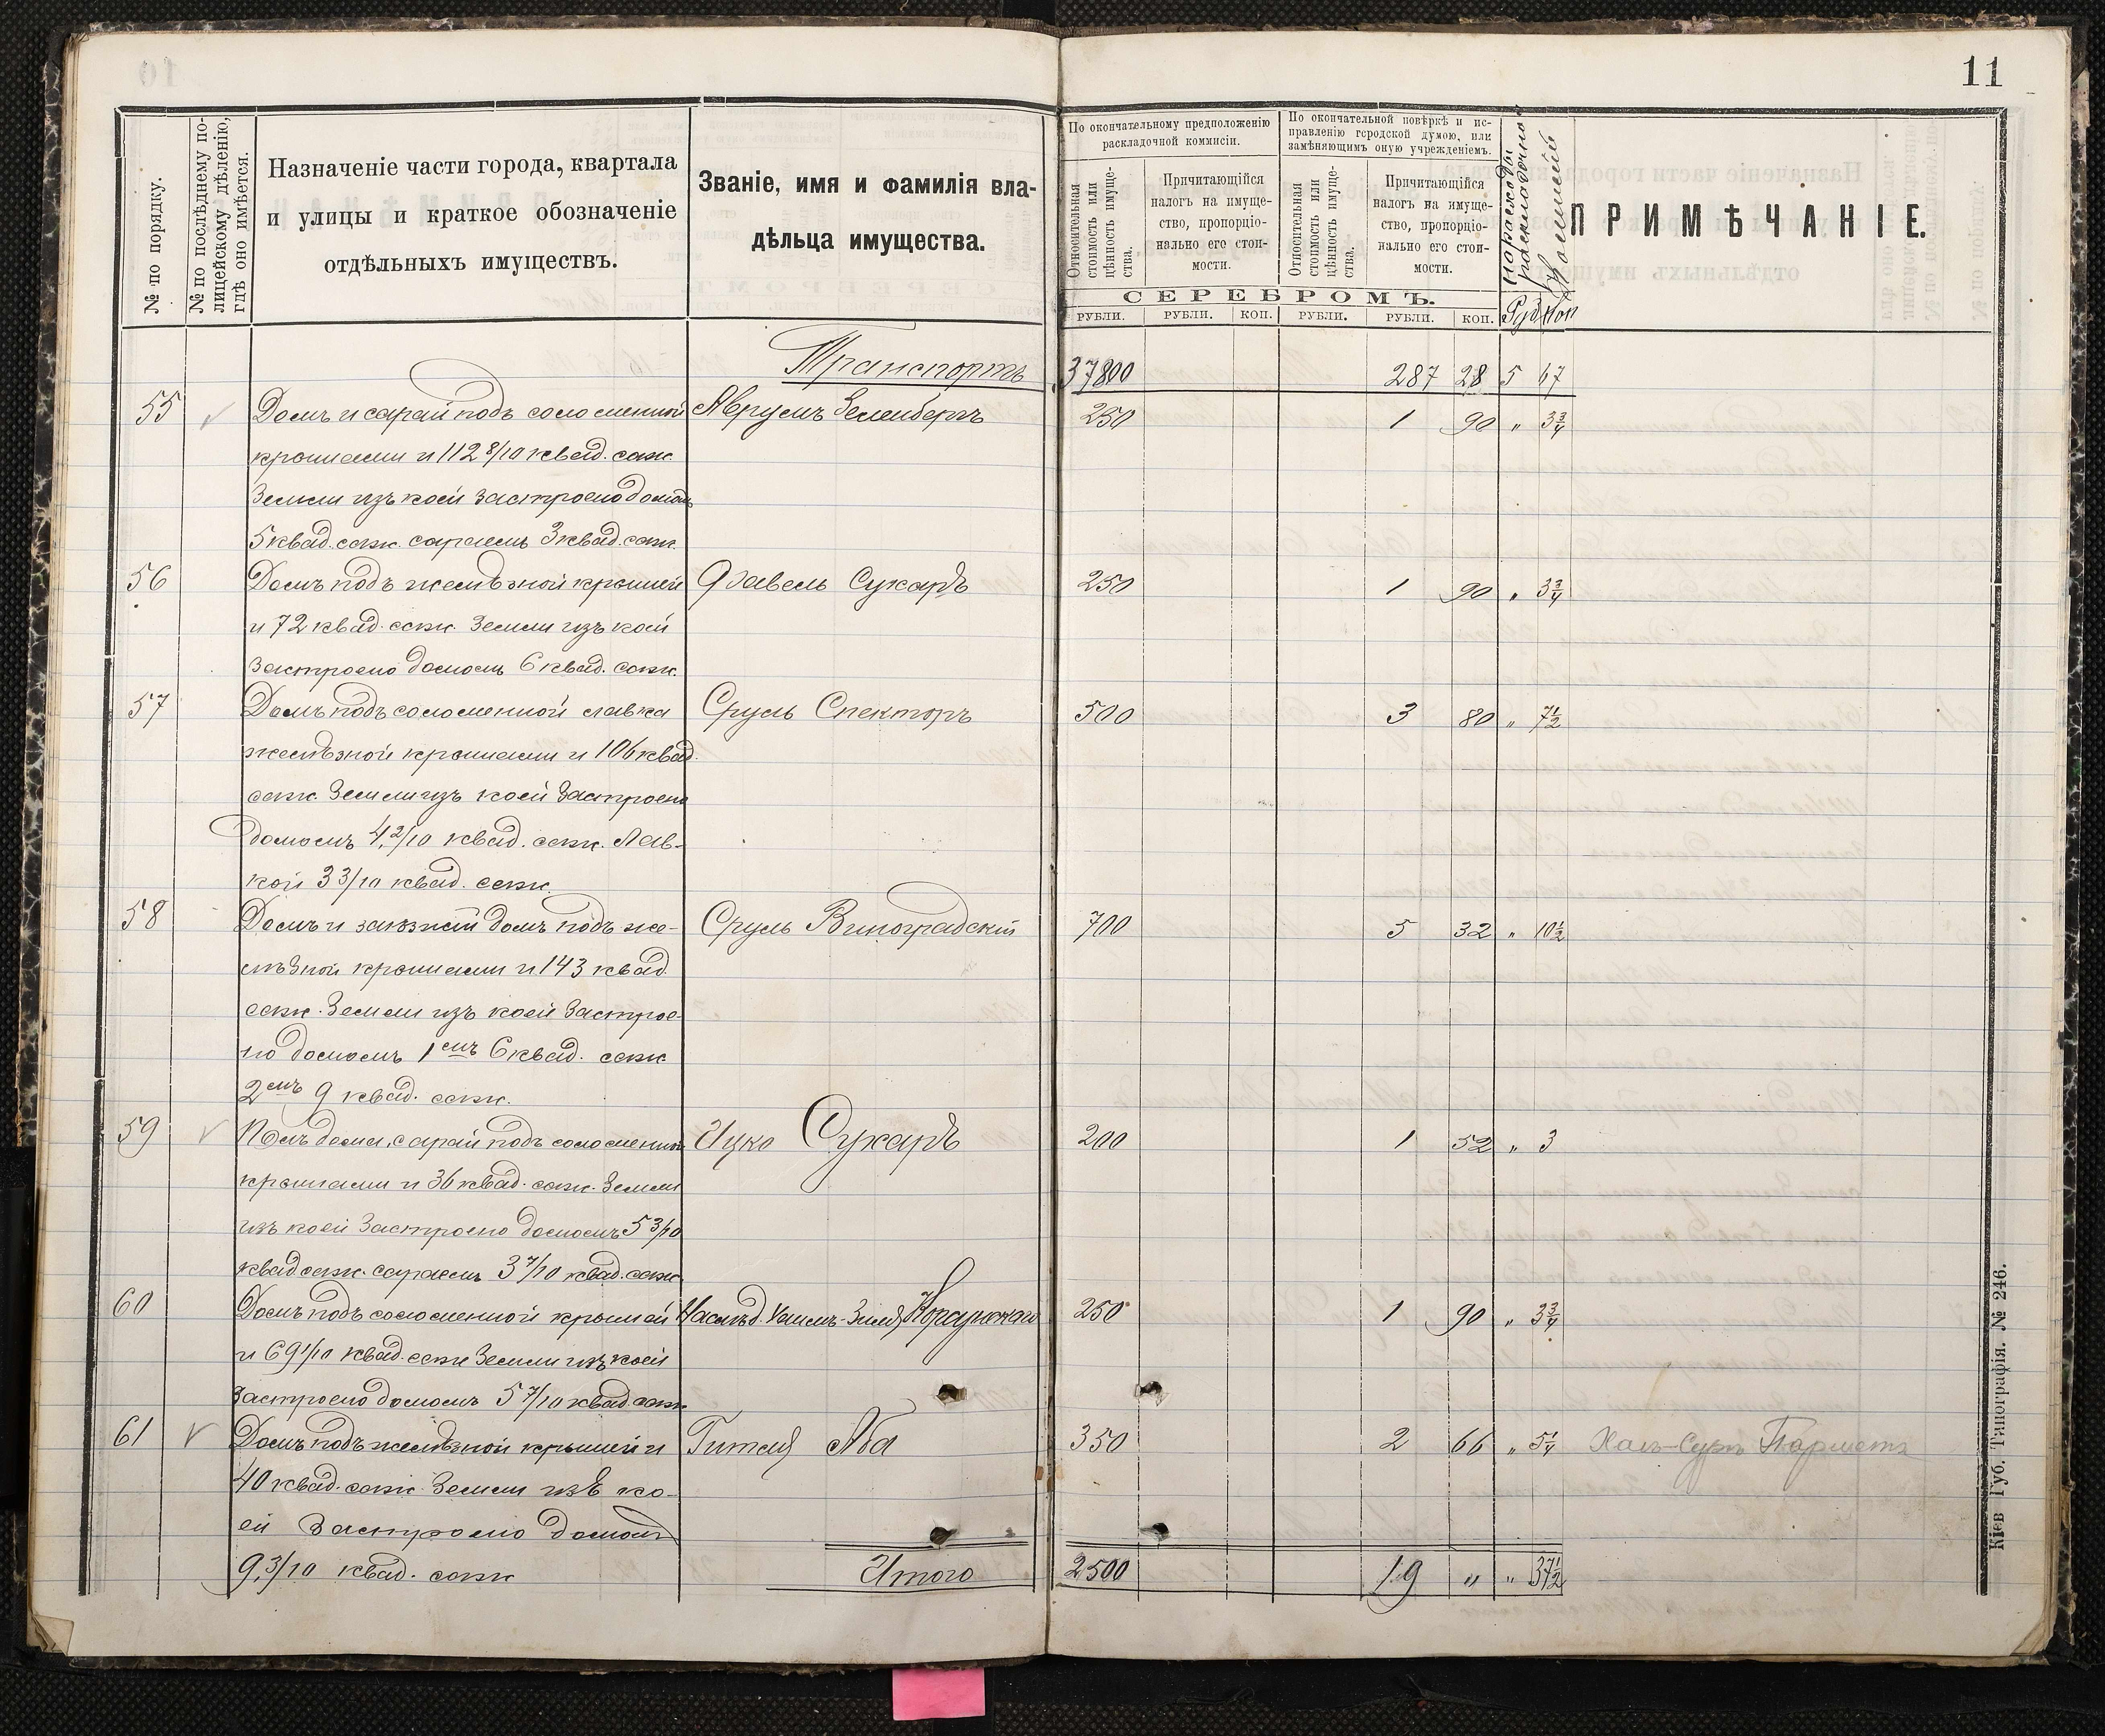 11
№ по порядку.
№ по послѣднему полицейскому дѣленію, гдѣ оно имѣется.
Назначеніе части города, квартала
и улицы и краткое обозначеніе
отдѣльныхъ имуществъ.
Званіе, имя и фамилія вла-
дѣльца имущества.
По окончательному предположенію
раскладочной коммисіи.
По окончательной повѣркѣ и ис-
правленію городской думою, или
замѣняющимъ оную учрежденіемъ.
Относительная стоимость или цѣнность имущества.
Причитающійся
налогъ на имуще-
ство, пропорціо-
нально его стои-
мости.
Относительная стоимость или цѣнность имущества.
Причитающійся
налогъ на имуще-
ство, пропорціо-
нально его стои-
мости.
На расходы
раскладочной
Комисіи
ПРИМѢЧАНІЕ.
СЕРЕБРОМЪ.
РУБЛИ. РУБЛИ. КОП. РУБЛИ. РУБЛИ. КОП. Руб Коп
Транспортъ 37800 287 28 5 67
55 Домъ и сарай подъ соломенной Аврумъ Зеленбергъ 250 1 90 " 3 3/4
крышами и 112 8/10 квад. саж.
Земли изъ коей застроено домомъ
5 квад. саж. сараемъ 3 квад. саж.
56 Домъ подъ желѣзной крышей Файвель Сухаръ 250 1 90 " 3 3/4
и 72 квад. саж. Земли изъ коей
застроено домомъ 6 квад. саж.
57 Домъ подъ соломенной лавка Сруль Спекторъ 500 3 80 " 7 1/2
желѣзной крышами и 106 квад.
саж. Земли изъ коей застроено
домомъ 4,2/10 квад. саж. Лав-
кой 3 3/10 квад. саж.
58 Домъ и заѣзжій домъ подъ же- Сруль Виноградскій 700 5 32 " 10 1/2
лѣзной крышами и 143 квад.
саж. Земли изъ коей застрое-
но домомъ 1емъ 6 квад. саж
2емъ 9 квад. саж.
59 Полъ дома, сарай подъ соломенной Ицко Сухаръ 200 1 52 " 3
крышами и 36 квад. саж. Земли
изъ коей застроено домомъ 5 3/10
квад саж. сараемъ 3 7/10 квад. саж
60 Домъ подъ соломенной крышей Наслѣд. 250 1 90 " 3 3/4
и 69 1/10 квад. саж Земли изъ коей
застроено домомъ 5 7/10 квад. саж
61 Домъ подъ желѣзной крышей и Гитля Аба 350 2 66 " 5 1/4 Хаъ-Суръ Парметъ
40 квад. саж. Земли изъ ко-
ей застроено домомъ
9,3/10 квад. саж
Итого 2500 19 " " 37 1/2
Кіев Губ. Типографія. № 246.